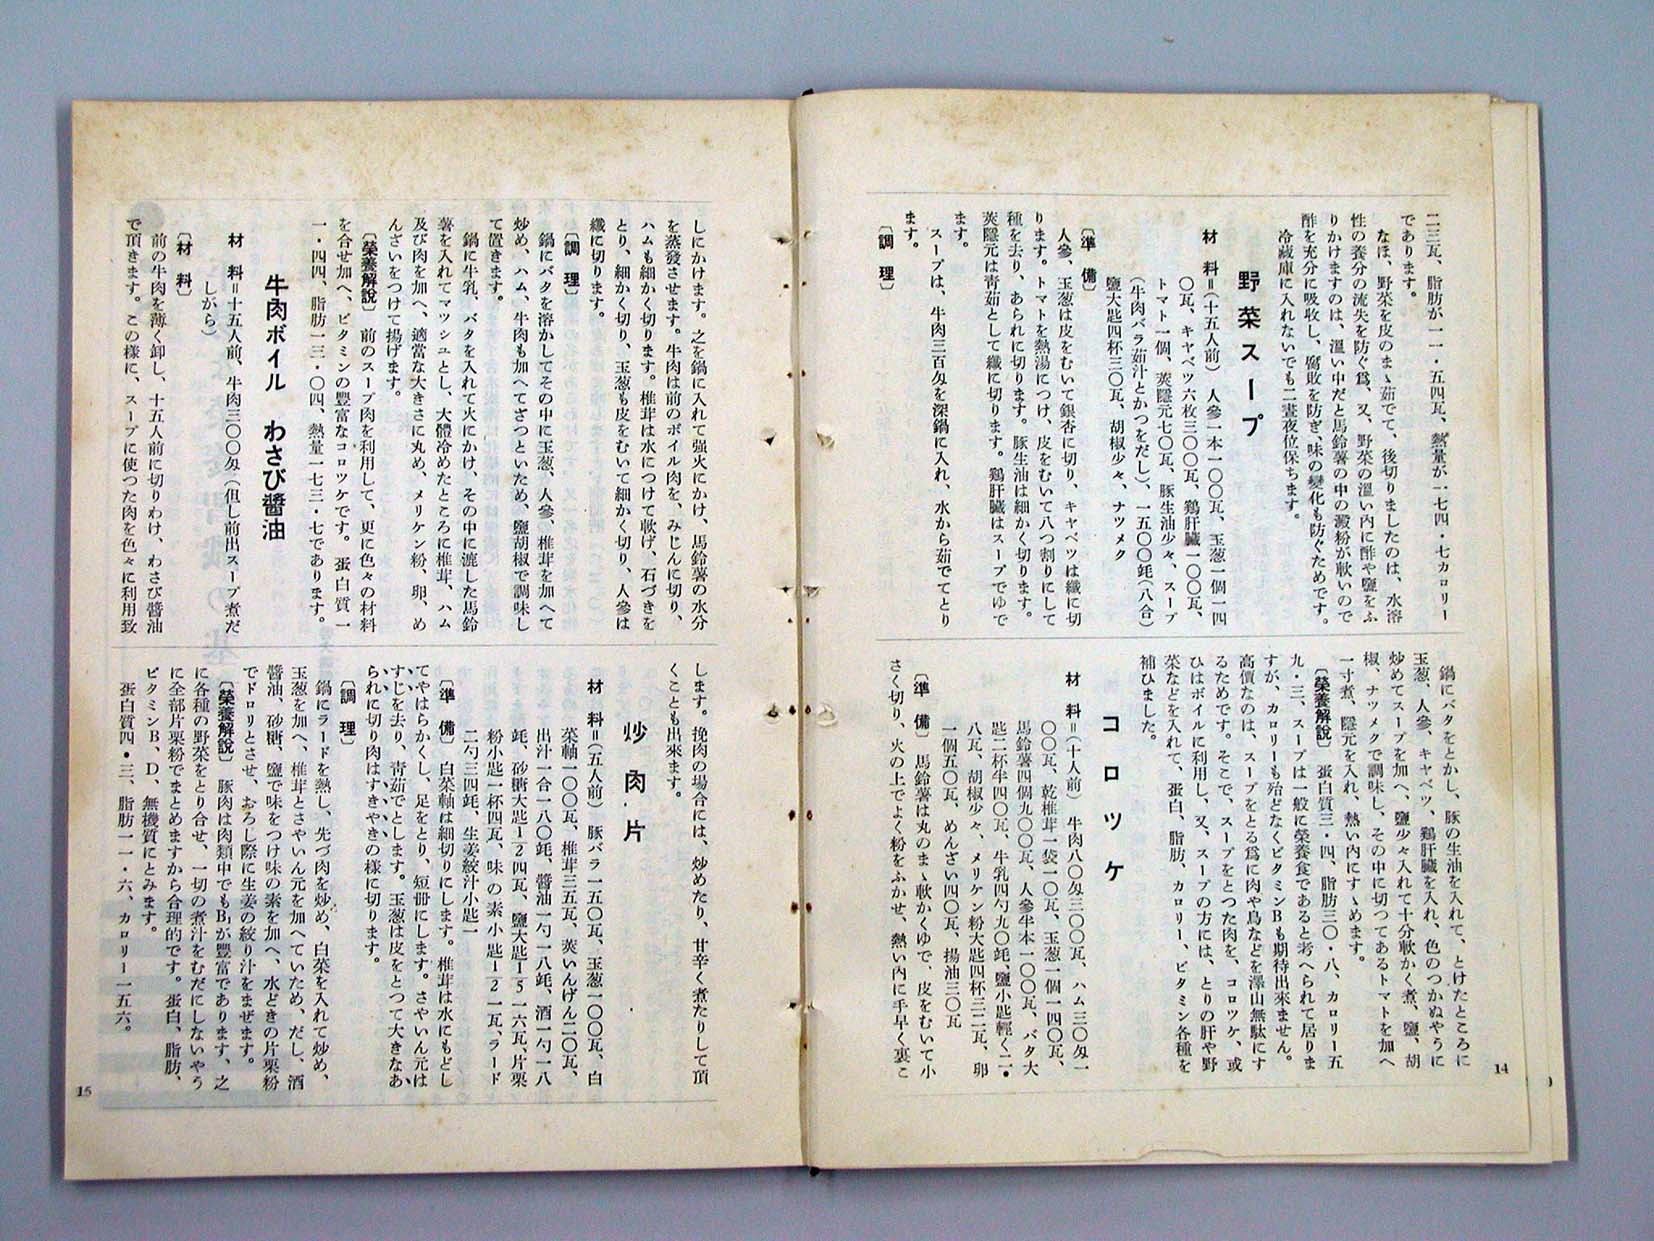 二三瓦、脂肪が一一・五四瓦、熱量が一七四・七カロリー
であります。
なほ、野菜を皮のまゝ茹でて、後切りましたのは、水溶
性の養分の流失を防ぐ爲、又、野菜の溫い内に酢や鹽をふ
りかけますのは、溫い中だと馬鈴薯の中の澱粉が軟いので
酢を充分に吸收し、腐敗を防ぎ、味の變化も防ぐためです。
冷藏庫に入れないでも二晝夜位保ちます。
野菜スープ
材料=(十五人前)人參一本一〇〇瓦、玉葱一個一四
〇瓦、キャベツ六枚三〇〇瓦、鷄肝臟一〇〇瓦、
トマト一個、莢隱元七〇瓦、豚生油少々、スープ
(牛肉バラ茹汁とかつをだし)、一五〇〇竓(八合)
鹽大匙四杯三〇瓦、胡椒少々、ナツメク
〔準備〕
人參、玉葱は皮をむいて銀杏に切り、キャベツは纖に切
ります。トマトを熱湯につけ、皮をむいて八つ割りにして
種を去り、あられに切ります。豚生油は細かく切ります。
莢隱元は靑茹として纖に切ります。鷄肝臟はスープでゆで
ます。
スープは、牛肉三百匁を深鍋に入れ、水から茹でてとり
ます。
〔調理〕
鍋にバタをとかし、豚の生油を入れて、とけたところに
玉葱、人參、キャベツ、鷄肝臟を入れ、色のつかぬやうに
炒めてスープを加へ、鹽少々入れて十分軟かく煮、鹽、胡
椒、ナツメクで調味し、その中に切つてあるトマトを加へ
一寸煮、隱元を入れ、熱い内にすゝめます。
〔榮養解說〕蛋白質三・四、脂肪三〇・八、カロリー五
九・三、スープは一般に榮養食であると考へられて居りま
すが、カロリーも殆どなくビタミンBも期待出來ません。
高價なのは、スープをとる爲に肉や鳥などを澤山無駄にす
るためです。そこで、スープをとつた肉を、コロツケ、或
ひはボイルに利用し、又、スープの方には、とりの肝や野
菜などを入れて、蛋白、脂肪、カロリー、ビタミン各種を
補ひました。
コロツケ
材料=(十人前)牛肉八〇匁三〇〇瓦、ハム三〇匁一
〇〇瓦、乾椎茸一袋一〇瓦、玉葱一個一四〇瓦、
馬鈴薯四個九〇〇瓦、人參半本一〇〇瓦、バタ大
匙二杯半四〇瓦、牛乳四勺九〇竓、鹽小匙輕く二・
八瓦、胡椒少々、メリケン粉大匙四杯三二瓦、卵
一個五〇瓦、めんざい四〇瓦、揚油三〇瓦
〔準備〕馬鈴薯は丸のまゝ軟かくゆで、皮をむいて小
さく切り、火の上でよく粉をふかせ、熱い内に手早く裏ご
14
しにかけます。之を鍋に入れて强火にかけ、馬鈴薯の水分
を蒸發させます。牛肉は前のボイル肉を、みじんに切り、
ハムも細かく切ります。椎茸は水につけて軟げ、石づきを
とり、細かく切り、玉葱も皮をむいて細かく切り、人參は
纖に切ります。
〔調理〕
鍋にバタを溶かしてその中に玉葱、人參、椎茸を加へて
炒め、ハム、牛肉も加へてざつといため、鹽胡椒で調味し
て置きます。
鍋に牛乳、バタを入れて火にかけ、その中に漉した馬鈴
薯を入れてマツシュとし、大體冷めたところに椎茸、ハム
及び肉を加へ、適當な大きさに丸め、メリケン粉、卵、め
んざいをつけて揚げます。
〔榮養解說〕前のスープ肉を利用して、更に色々の材料
を合せ加へ、ビタミンの豐富なコロツケです。蛋白質一
一・四四、脂肪一三・〇四、熱量一七三・七であります。
牛肉ボイル わさび醬油
材料=十五人前、牛肉三〇〇匁(但し前出スープ煮だ
しがら)
〔材料〕
前の牛肉を薄く卸し、十五人前に切りわけ、わさび醬油
で頂きます。この樣に、スープに使つた肉を色々に利用致
します。挽肉の場合には、炒めたり、甘辛く煮たりして頂
くことも出來ます。
炒肉片
材料=(五人前)豚バラ一五〇瓦、玉葱一〇〇瓦、白
菜軸一〇〇瓦、椎茸三五瓦、莢いんげん二〇瓦、
出汁一合一八〇竓、醬油一勺一八竓、酒一勺一八
竓、砂糖大匙1/2四瓦、鹽大匙1/5一六瓦、片栗
粉小匙一杯四瓦、味の素小匙1/2一瓦、ラード
二勺三四竓、生姜絞汁小匙一
〔準備〕白菜軸は細切りにします。椎茸は水にもどし
てやはらかくし、足をとり、短册にします。さやいん元は
すじを去り、靑茹でとします。玉葱は皮をとつて大きなあ
られに切り肉はすきやきの樣に切ります。
〔調理〕
鍋にラードを熱し、先づ肉を炒め、白菜を入れて炒め、
玉葱を加へ、椎茸とさやいん元を加へていため、だし、酒
醬油、砂糖、鹽で味をつけ味の素を加へ、水どきの片栗粉
でドロリとさせ、おろし際に生姜の絞り汁をまぜます。
〔榮養解說〕豚肉は肉類中でもB₁が豐富であります、之
に各種の野菜をとり合せ、一切の煮汁をむだにしないやう
に全部片栗粉でまとめますから合理的です。蛋白、脂肪、
ビタミンB、D、無機質にとみます。
蛋白質四・三、脂肪一一・六、カロリー一五六。
15